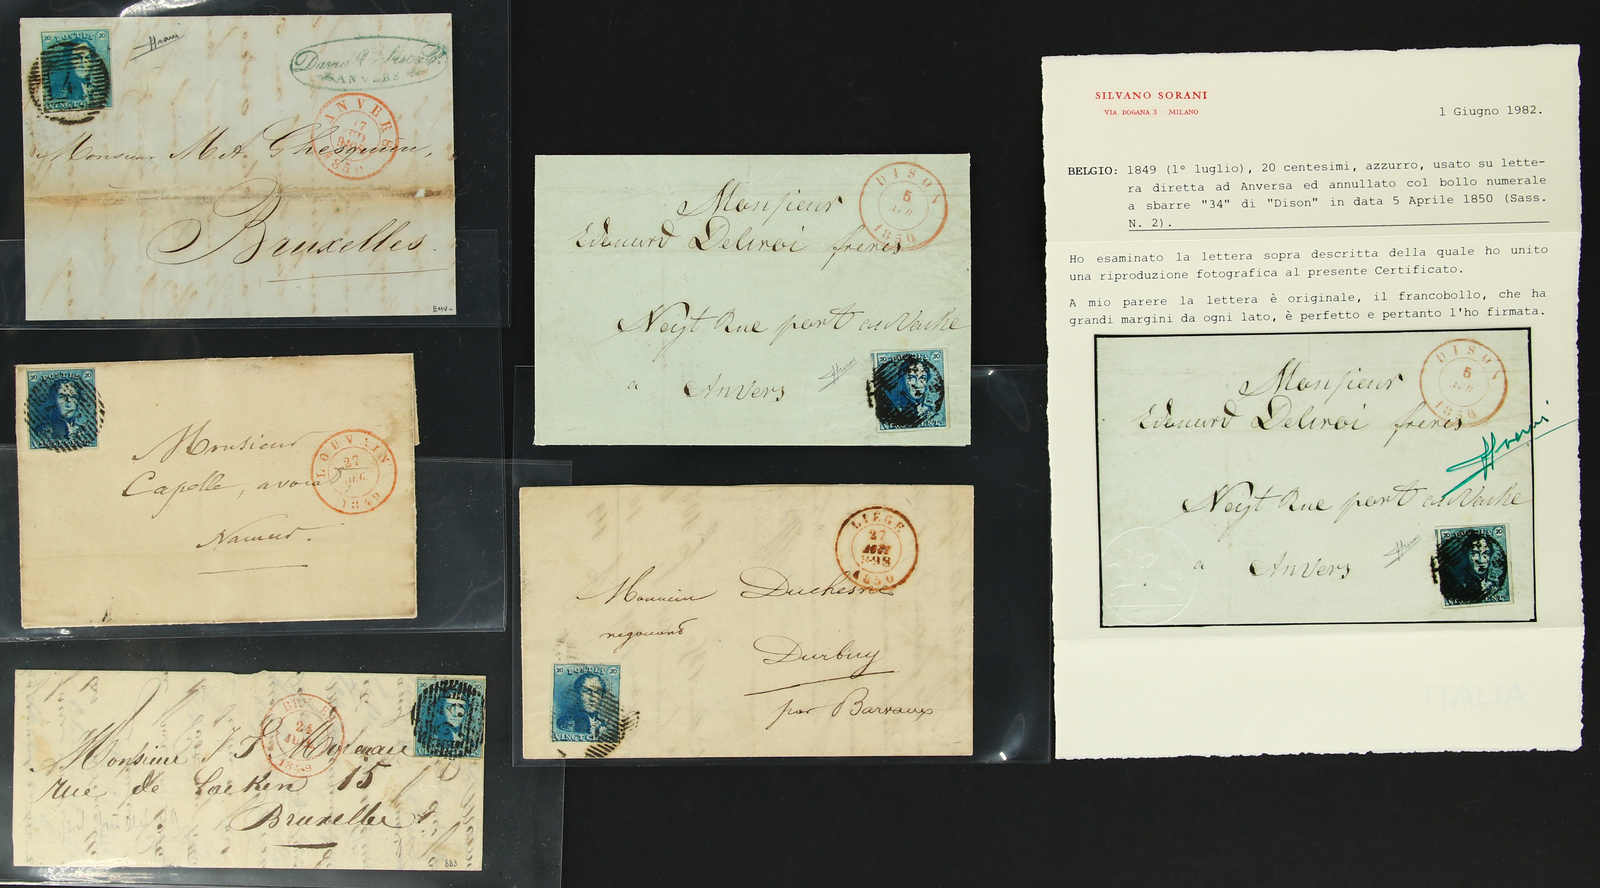 ANVERS
1850
Monsieur M. A.
Bruxelles.
LOUVAIN
27
DEC
1849
Monsieur
Capelle, avoué
Namur.
24
Monsieur
rue de Laeken 15
Bruxelles
883
DISON
5
1850
Monsieur
Edouard Deliroi frères
Neyt Rue port au Vache
a Anvers
LIÉGE
27
1850
Monsieur Duchesne
negociant
Durbuy
par Barvaux
SILVANO SORANI
VIA DOGANA 3 MILANO
1 Giugno 1982.
BELGIO: 1849 (1° luglio), 20 centesimi, azzurro, usato su lette-
ra diretta ad Anversa ed annullato col bollo numerale
a sbarre "34" di "Dison" in data 5 Aprile 1850 (Sass.
N. 2).
Ho esaminato la lettera sopra descritta della quale ho unito
una riproduzione fotografica al presente Certificato.
A mio parere la lettera è originale, il francobollo, che ha
grandi margini da ogni lato, è perfetto e pertanto l'ho firmata.
DISON
5
1850
Monsieur
Edouard Deliroi frères
Neyt Rue port au Vache
a Anvers